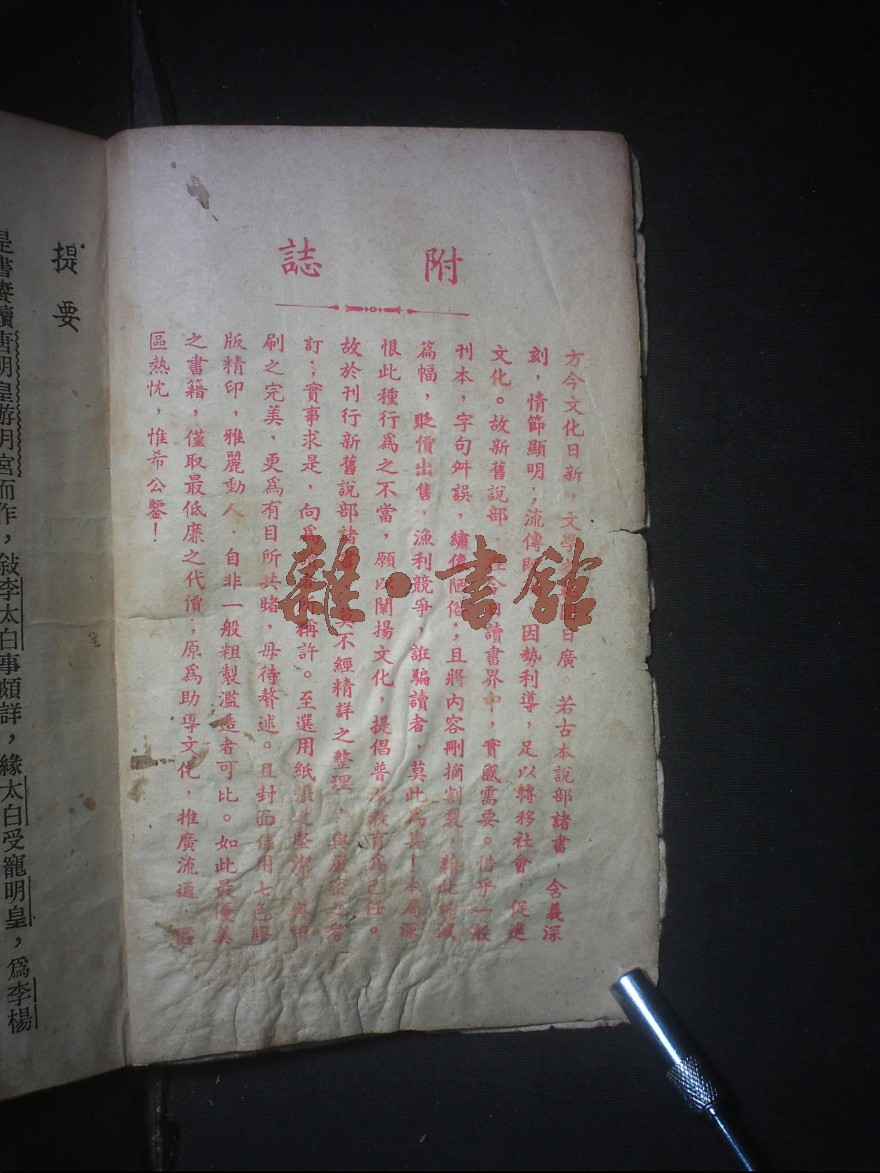 附誌
方今文化日新，文學之範圍日廣。若古本說部諸書，含義深
刻，情節顯明；流傳 因勢利導，足以轉移社會，促進
文化。故新舊說部，在今日讀書界中，實感需要。惜乎一般
刊本，字句舛誤，繡像陋俗；且將內容刪摘割裂，藉此縮減
篇幅，貶價出售，漁利競爭，誑騙讀者，莫此為甚！本局深
恨此種行爲之不當，願以闡揚文化，提倡普及教育爲己任。
故於刊行新舊說部諸書，莫不經精詳之整理，與嚴密之考
訂；實事求是，向爲 所稱許。至選用紙張之堅潔，與印
刷之完美，更爲有目所共睹，毋待贅述。且封面信用七色膠
版精印，雅麗動人，自非一般粗製濫造者可比。如此最優美
之書籍，僅取最低廉之代價；原爲助導文化，推廣流通，區
區熱忱，惟希公鑒！
雜·書舘
提要
是書賡續唐明皇游月宮而作，敍李太白事頗詳，緣太白受寵明皇，爲李楊